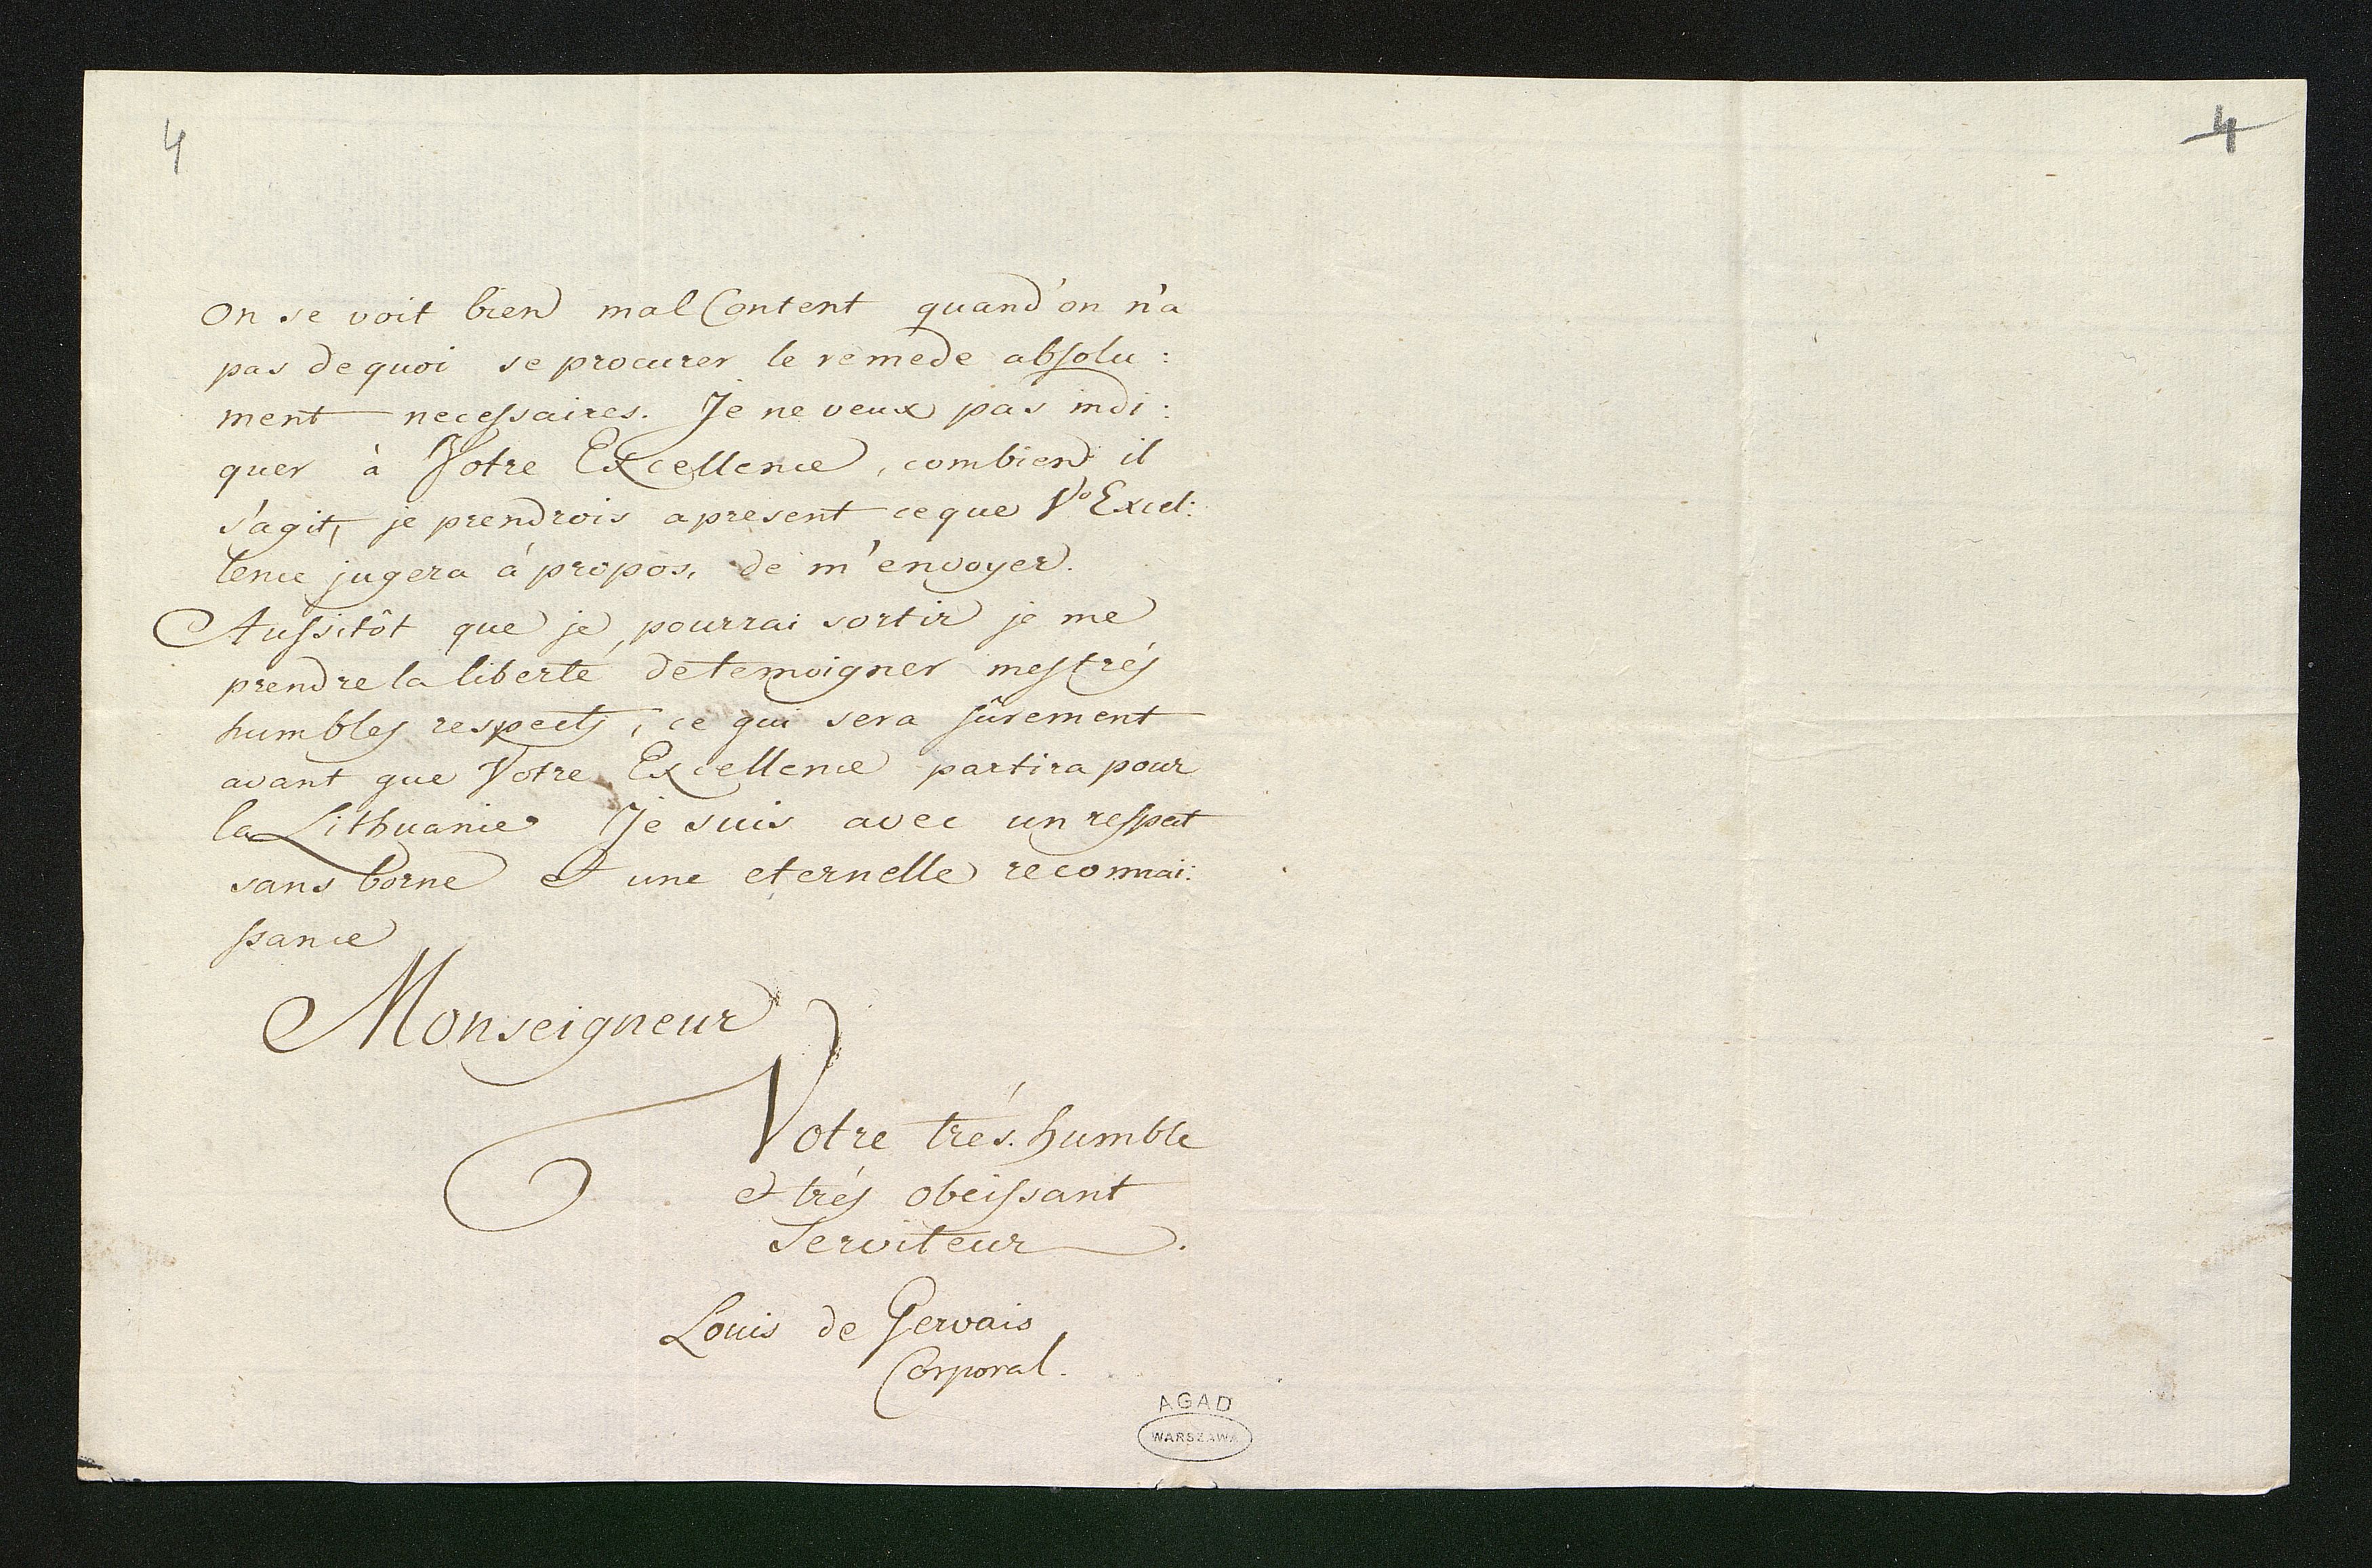 4
4
On se voit bien mal Content quand'on n'a
pas de quoi se procurer le remede absolu:
ment necessaires. Je ne veux pas indi:
quer à Votre Excellence, combien il
s'agit, je prendrois apresent ce que Vo Excel:
lence jugera á propos, de m'envoyer.
Aussitôt que je pourrai sortir je me
prendre la liberté de temoigner mes trés
humbles respects, ce qui sera sûrement
avant que Votre Excellence partira pour
la Lithuanie Je suis avec un respect
sans borne et une eternelle reconnai:
ssance
Monseigneur
Votre trés humble
et trés obeissant
Serviteur.
Louis de Gervais
Corporal.
AGAD
WARSZAWA